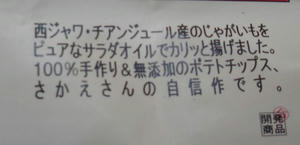 西ジャワ・チアンジュール産のじゃがいもを
ピュアなサラダオイルでカリッと揚げました。
100%手作り&無添加のポテトチップス、
さかえさんの自信作です。
開発
商品